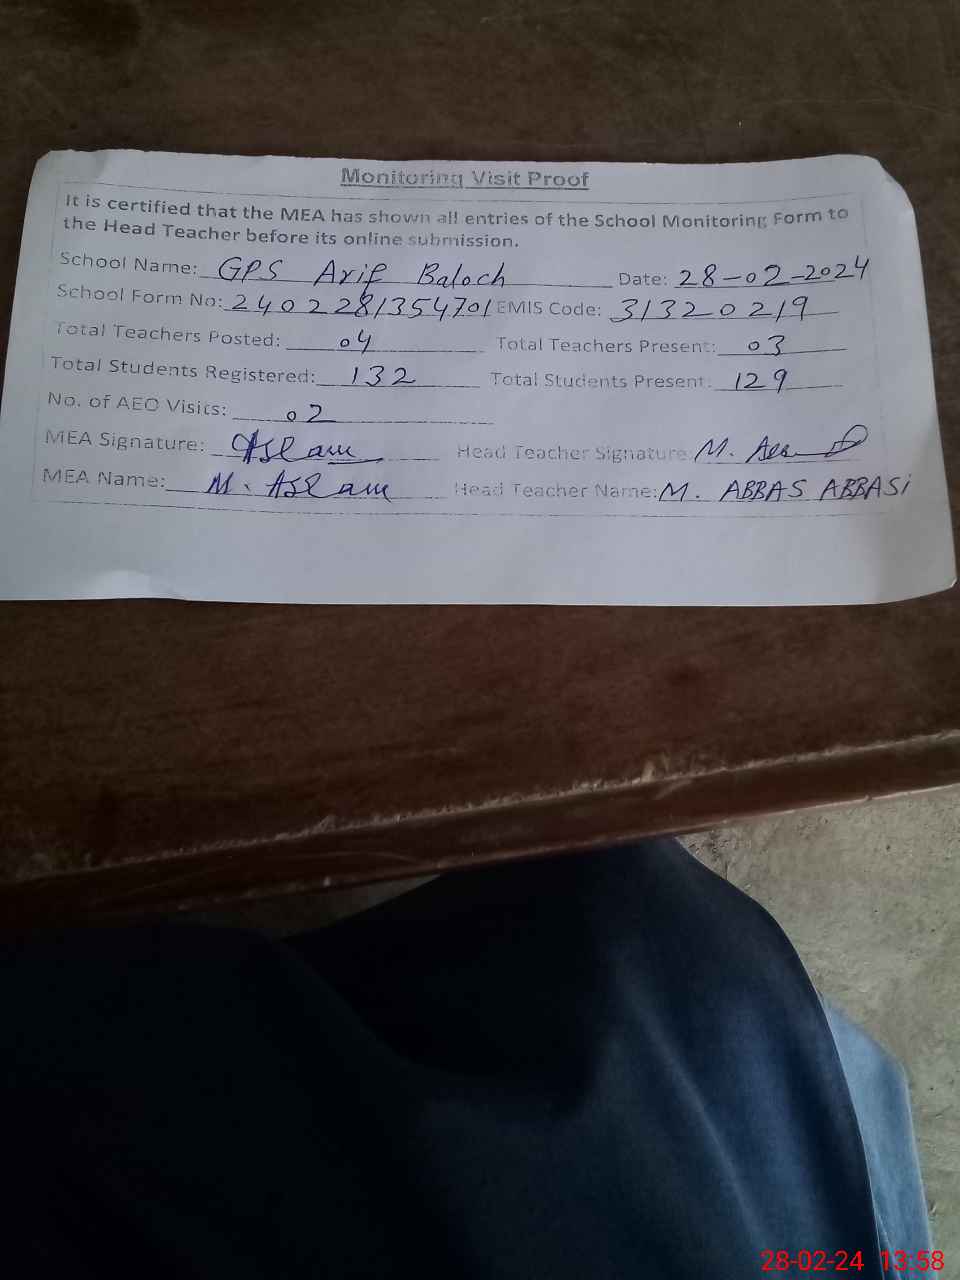 Monitoring Visit Proof
It is certified that the MEA has shown all entries of the School Monitoring Form to
the Head Teacher before its online submission.
School Name: GPS Arif Baloch Date: 28-02-2024
School Form No: 2402281354701 EMIS Code: 31320219
Total Teachers Posted: 04 Total Teachers Present: 03
Total Students Registered: 132 Total Students Present: 129
No. of AEO Visits: 02
MEA Signature: Aslam Head Teacher Signature: M.
MEA Name: M. Aslam Head Teacher Name: M. ABBAS ABBASi
28-02-24 13:58